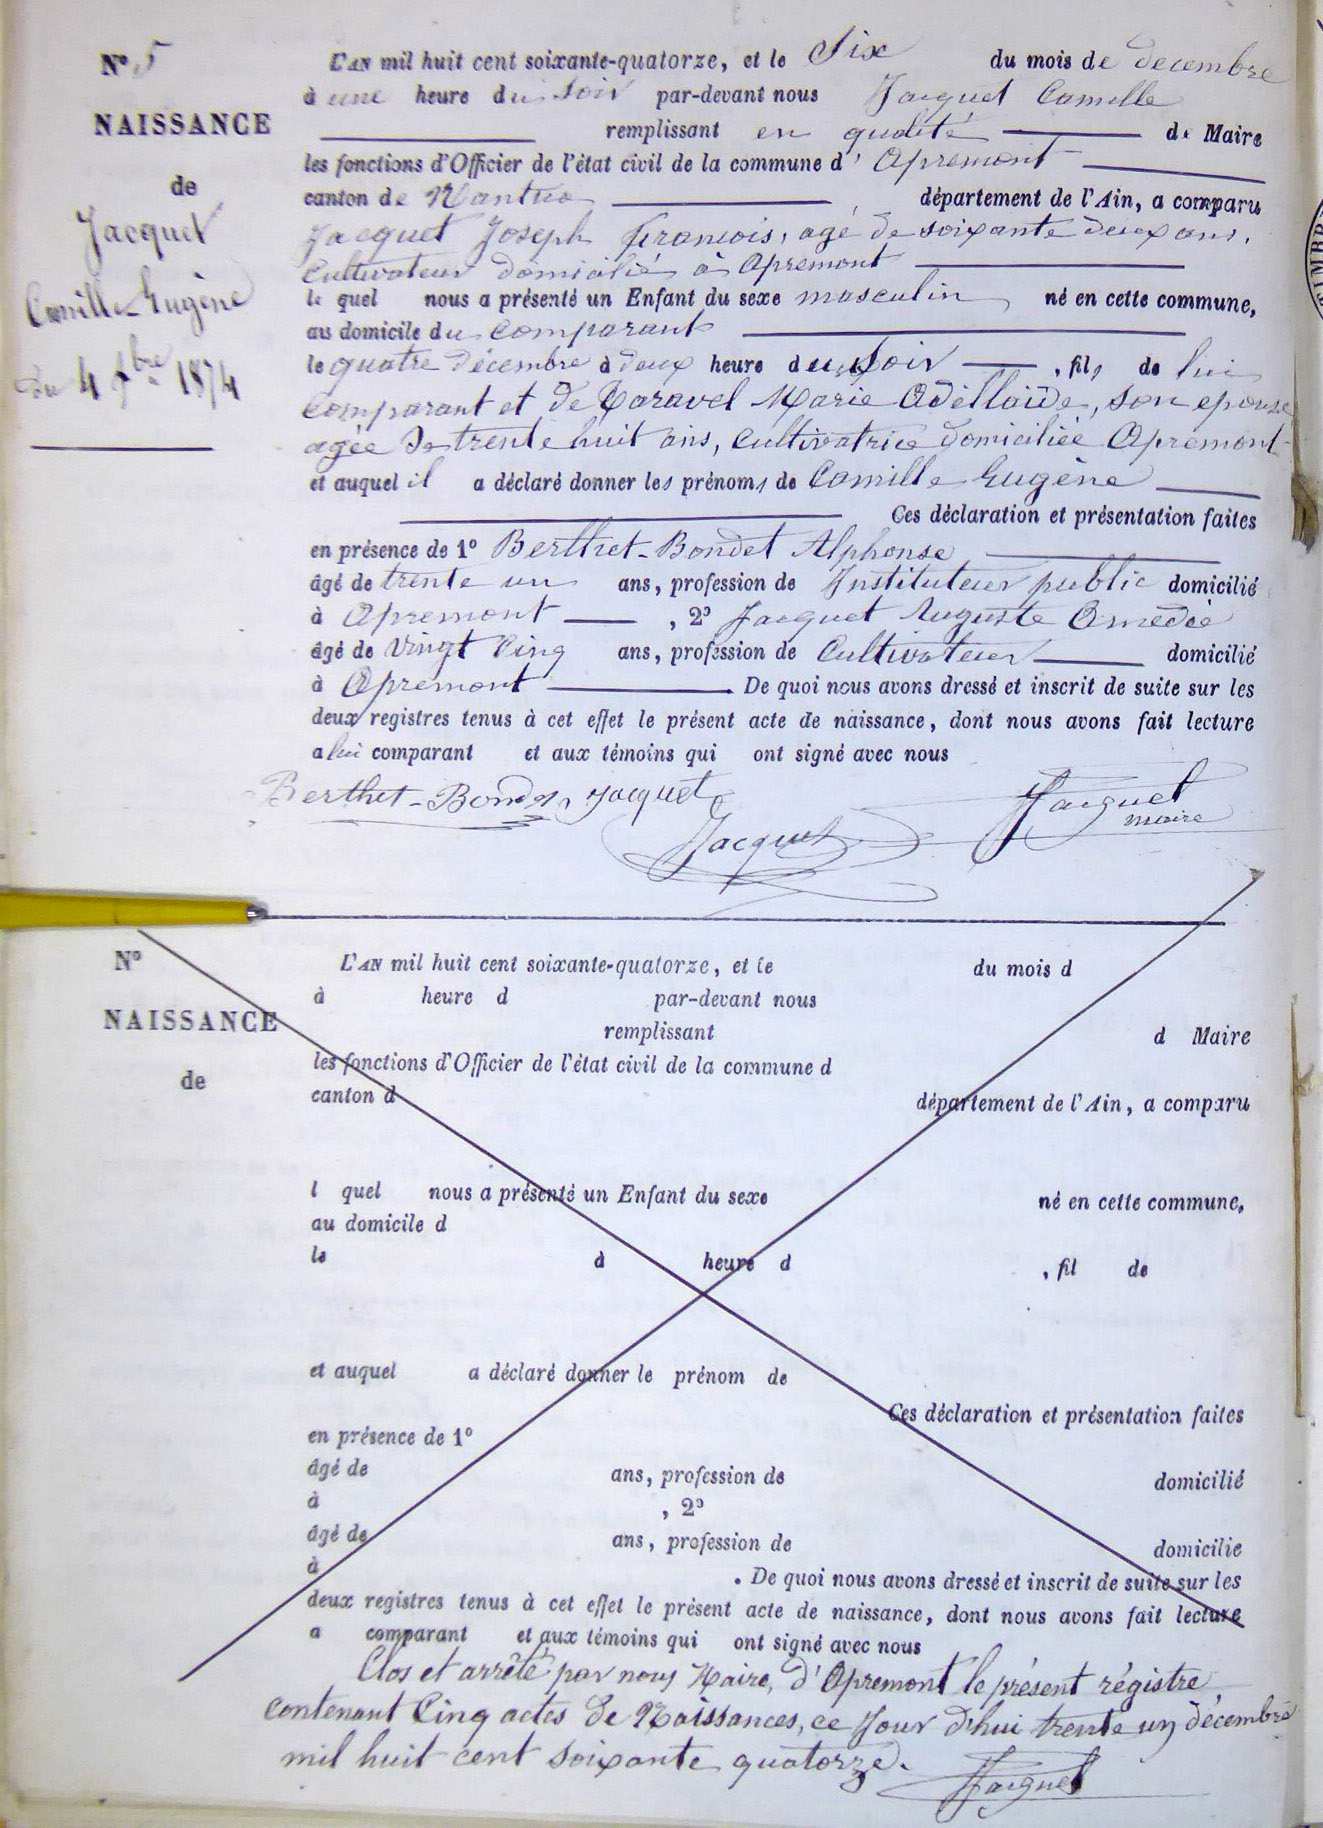 N° 5
NAISSANCE
de
Jacquet
Camille Eugène
du 4 Xbre 1874
L'AN mil huit cent soixante-quatorze, et le Six du mois de décembre
à une heure du Soir par-devant nous Jacquet Camille
remplissant en qualité de Maire
les fonctions d'Officier de l'état civil de la commune d'Apremont
canton de Nantua département de l'Ain, a comparu
Jacquet Joseph François, agé de soixante deux ans,
Cultivateur domicilié à Apremont
le quel nous a présenté un Enfant du sexe masculin né en cette commune,
au domicile du comparant
le quatre décembre à deux heure du Soir, fils de lui
comparant et de Caravel Marie Adéllaïde, son epouse
agée de trente huit ans, Cultivatrice domiciliée Apremont
et auquel il a déclaré donner les prénoms de Camille Eugène
Ces déclaration et présentation faites
en présence de 1° Berthet-Bondet Alphonse
âgé de trente un ans, profession de Instituteur public domicilié
à Apremont, 2° Jacquet Auguste Amédée
âgé de Vingt Cinq ans, profession de Cultivateur domicilié
à Apremont De quoi nous avons dressé et inscrit de suite sur les
deux registres tenus à cet effet le présent acte de naissance, dont nous avons fait lecture
a lui comparant et aux témoins qui ont signé avec nous
Berthet-Bondet Jacquet Jacquet
maire
Jacquet
N°
NAISSANCE
de
L'AN mil huit cent soixante-quatorze, et le du mois d
à heure d par-devant nous
remplissant d Maire
les fonctions d'Officier de l'état civil de la commune d
canton d département de l'Ain, a comparu
l quel nous a présenté un Enfant du sexe né en cette commune,
au domicile d
le à heure d , fil de
et auquel a déclaré donner le prénom de
Ces déclaration et présentation faites
en présence de 1°
âgé de ans, profession de domicilié
à , 2°
âgé de ans, profession de domicilié
à . De quoi nous avons dressé et inscrit de suite sur les
deux registres tenus à cet effet le présent acte de naissance, dont nous avons fait lecture
a comparant et aux témoins qui ont signé avec nous
Clos et arrêté par nous Maire, d'Apremont le présent régistre
contenant Cinq actes de Naissances, ce Jour d'hui trente un décembre
mil huit cent soixante quatorze.
Jacquet
TIMBR